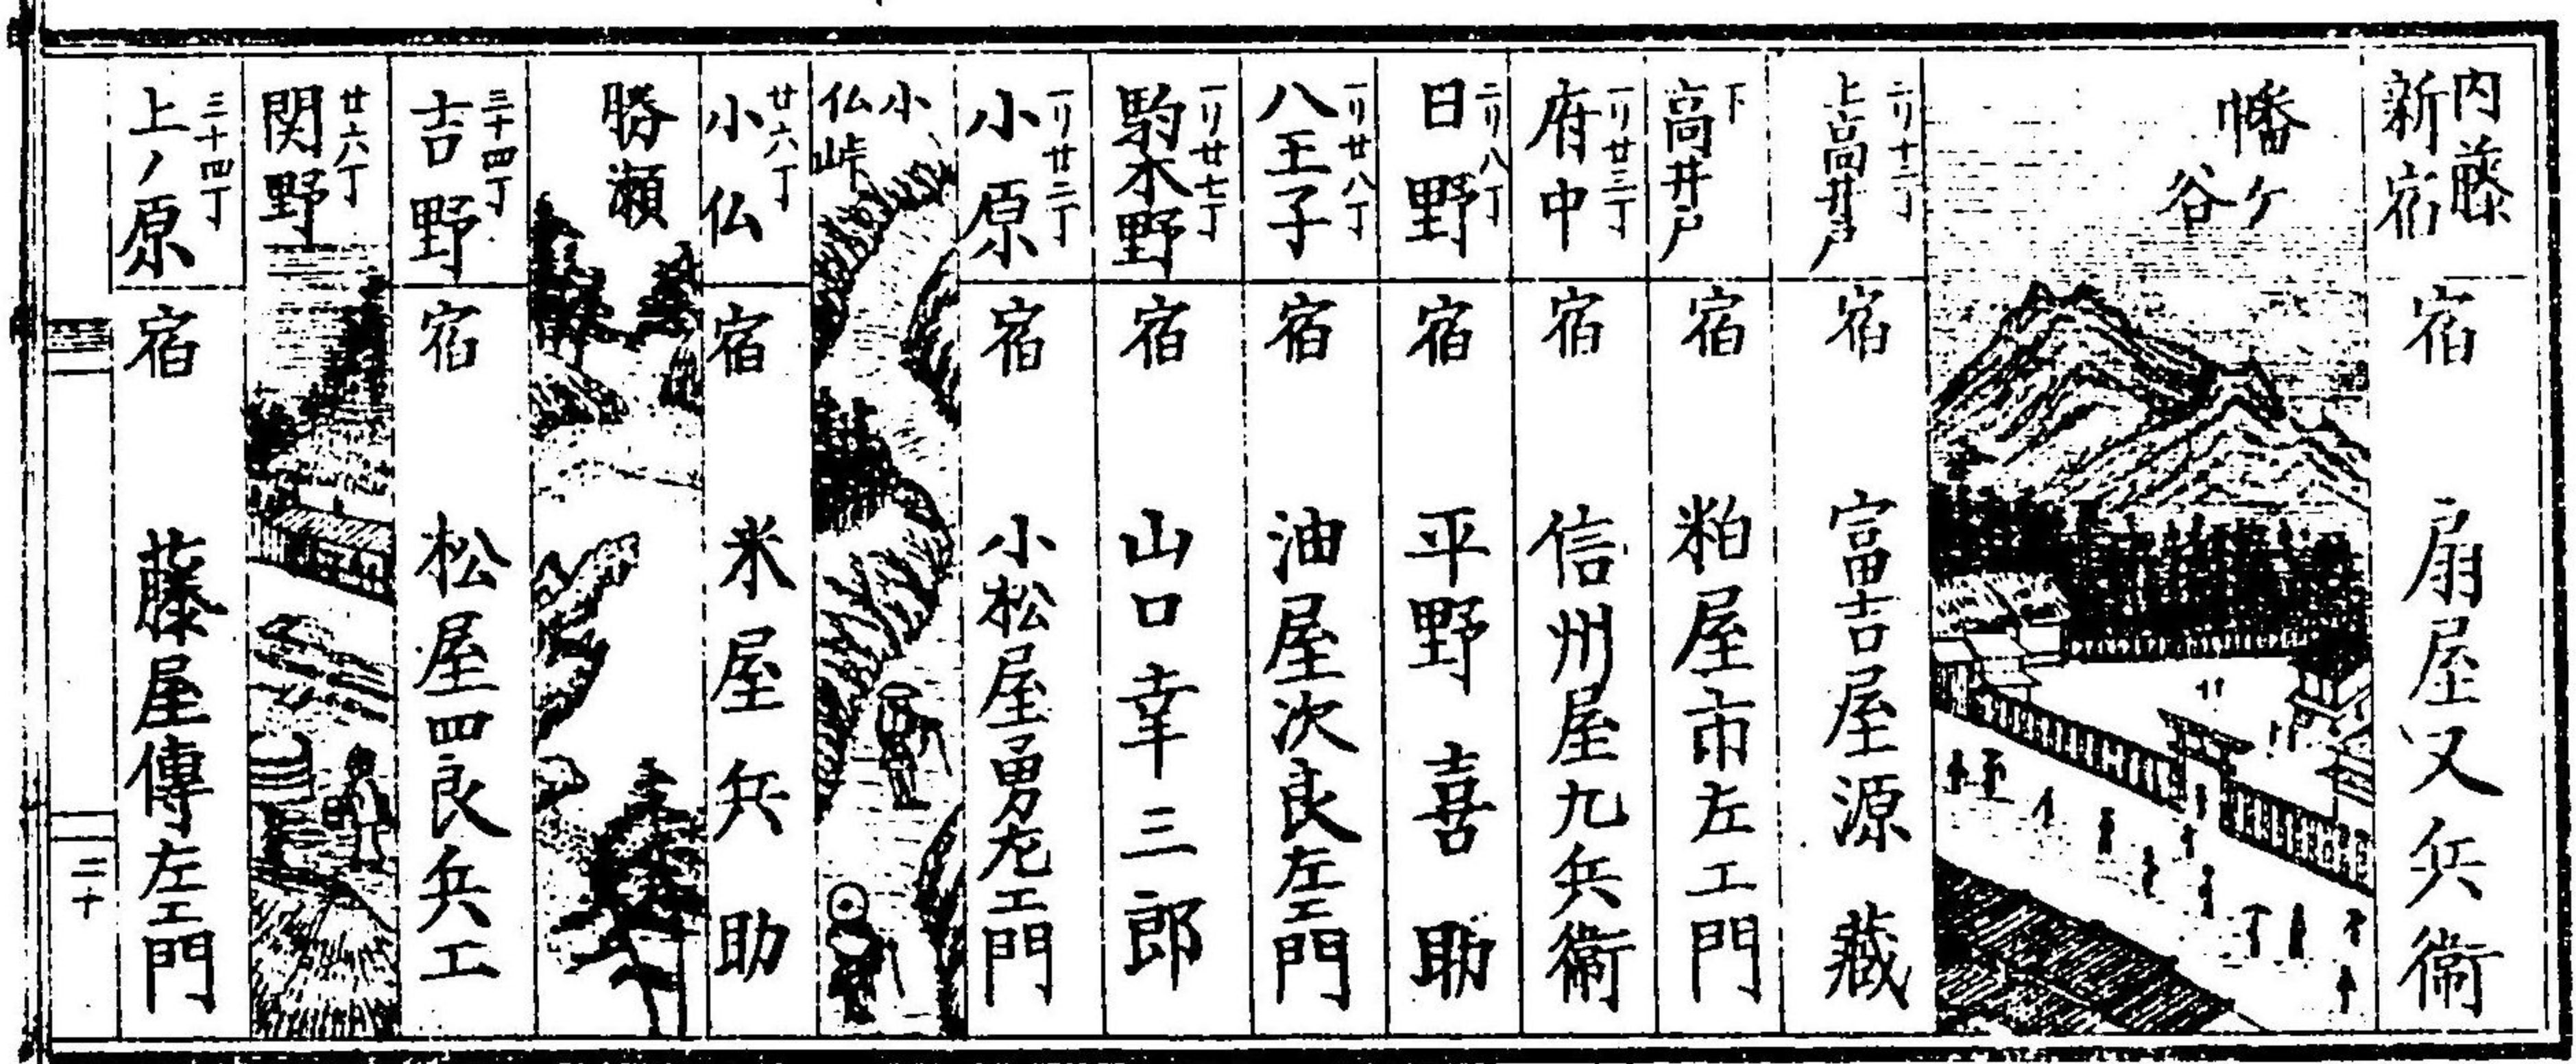 内藤
新宿
宿 扇屋又兵衛
幡ヶ
谷
二リ十二丁
上高井戸
宿 富吉屋源藏
下
高井戸
宿 粕屋市左エ門
一リ廿三丁
府中
宿 信州屋九兵衛
二リ八丁
日野
宿 平野喜助
一リ廿八丁
八王子
宿 油屋次良左エ門
一リ廿七丁
駒木野
宿 山口幸三郎
一リ廿二丁
小原
宿 小松屋勇左エ門
小
仏峠
廿六丁
小仏
宿 米屋兵助
勝瀬
三十四丁
吉野
宿 松屋四良兵エ
廿六丁
関野
三十四丁
上ノ原
宿 藤屋傳左エ門
二十